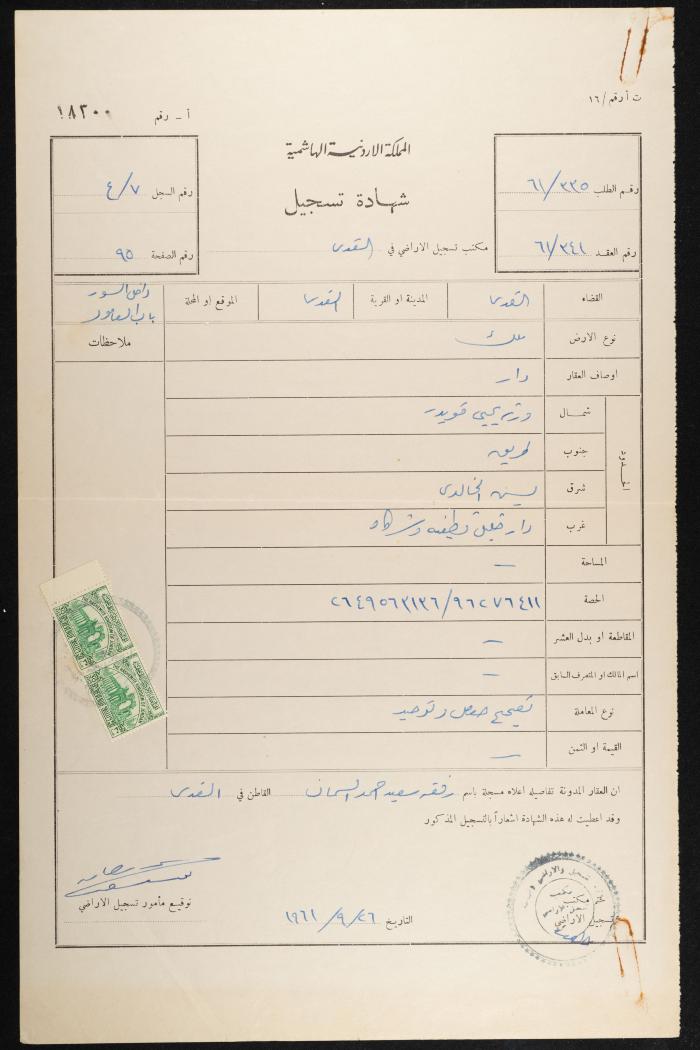 ت أ رقم / ١٦
أ - رقم ١٨٣٠٠
المملكة الاردنية الهاشمية
شهادة تسجيل
رقم الطلب ٦١/٣٣٥
رقم العقد ٦١/٣٤١
رقم السجل ٤/٧
رقم الصفحة ٩٥
مكتب تسجيل الاراضي في القدس
القضاء القدس المدينة او القرية القدس الموقع او المحلة داخل السور
باب العامود
نوع الارض ملك
ملاحظات
اوصاف العقار دار
الحدود
شمال ورثة يحيى قويدر
جنوب طريق
شرق يسن الخالدي
غرب دار وشركاه
المساحة —
الحصة
المقاطعة او بدل العشر —
اسم المالك او المتصرف السابق —
نوع المعاملة تصحيح حصص وتوحيد
القيمة او الثمن —
ان العقار المدونة تفاصيله اعلاه مسجلة باسم رفقه سعيد احمد السمان القاطن في القدس
وقد اعطيت له هذه الشهادة اشعاراً بالتسجيل المذكور
توقيع مأمور تسجيل الاراضي
التاريخ ٢٦/٩/١٩٦١
مكتب
تسجيل الاراضي